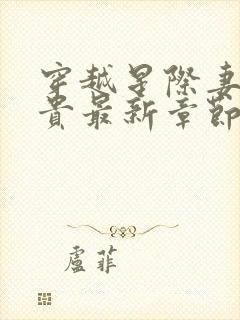 穿越星際妻
貴最新章節
盧菲